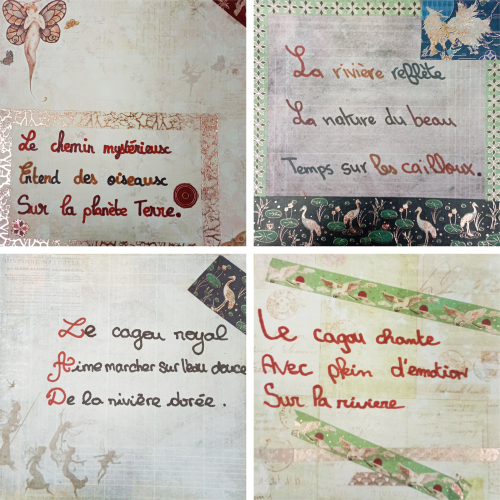 Le chemin mystérieux
Entend des oiseaux
Sur la planète Terre.
La rivière reflète
La nature du beau
Temps sur les cailloux.
Le cagou royal
Aime marcher sur l'eau douce
De la rivière dorée.
Le cagou chante
Avec plein d'emotion
Sur la riviere